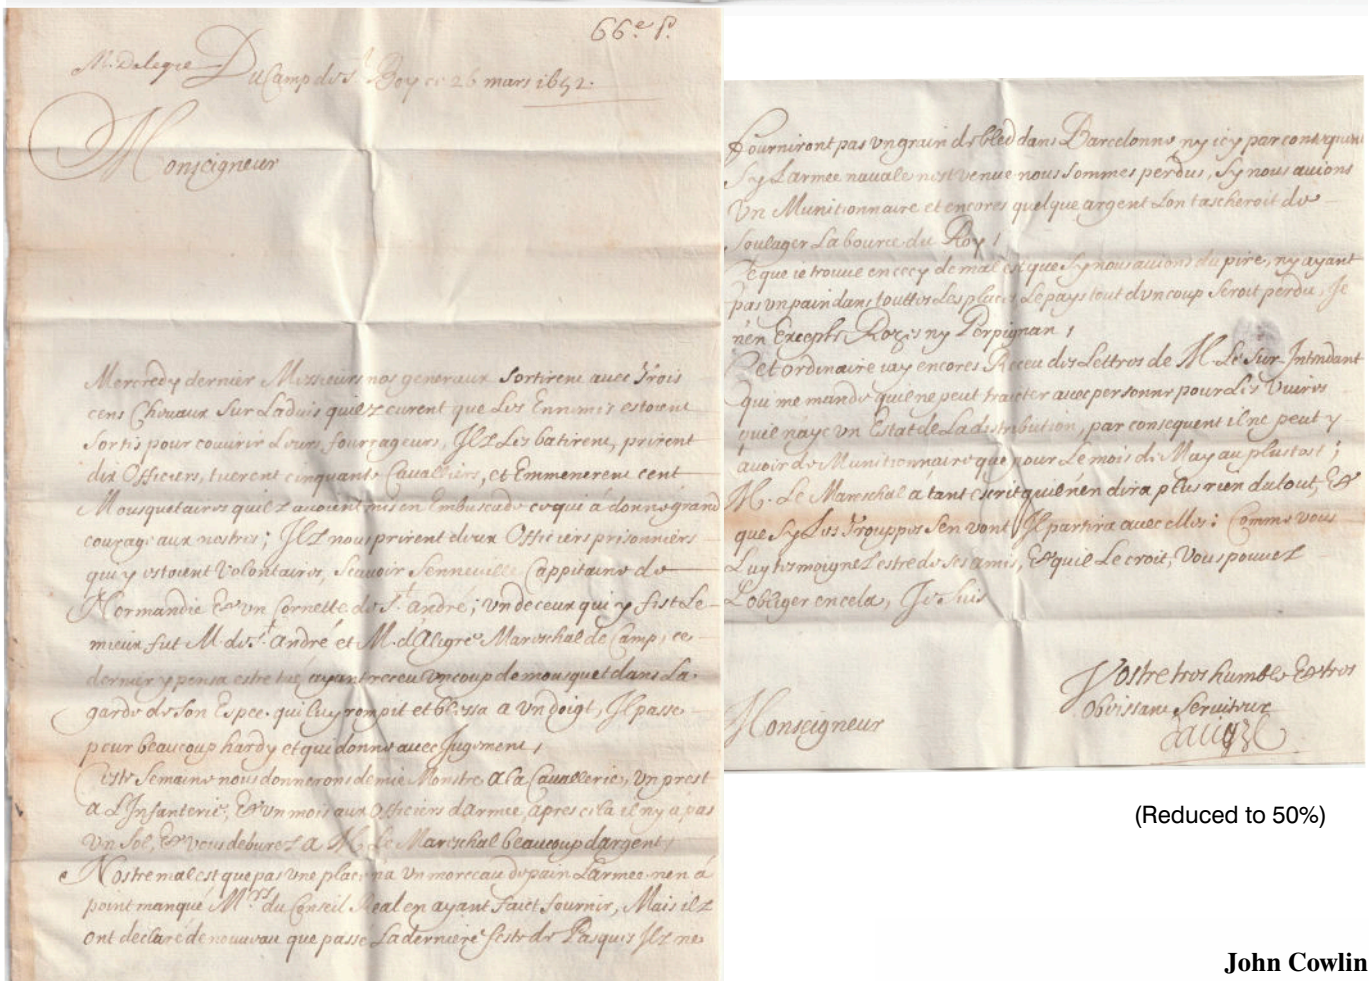 66e P.
Du Camp de St Boy ce 26 mars 1652.
Monseigneur
Mercredy dernier Messieurs nos generaux Sortirent avec Trois
cens Chevaux Sur Ladvis quilz eurent que Les Ennemis estoient
Sortis pour couvrir Leurs fourrageurs, Ilz Les batirent, prirent
dix Officiers, tuerent cinquante Cavalliers, et Emmenerent cent
Mousquetaires quilz avoient mis en Embuscade ce qui à donné grand
courage aux nostres; Ilz nous prirent deux Officiers prisonniers
qui y estoient Volontaires, Scavoir Senneville Cappitaine de
Normandie Et un Cornette de St. André; un de ceux qui y fist Le
mieux fut M. de St. André et M. d'Aligre Mareschal de Camp, ce
dernier y pensa estre tué ayant receu un coup de mousquet dans La
garde de Son Espee qui Luy rompit et blessa a un doigt, Il passe
pour beaucoup hardy et qui donne avec Jugement,
Ceste Semaine nous donnerons demie Monstre a La Cavallerie, un prest
a L'Infanterie, Et un mois aux Officiers d'armee, apres cela il ny a pas
un Sol, Et vous deburez a M. Le Mareschal beaucoup d'argent,
Nostre mal est que pas une place na un morceau de pain L'armee nen à
point manqué Mrs. du Conseil Real en ayant faict fournir, Mais ilz
ont declaré de nouveau que passé La derniere feste de Pasques Ilz ne
fourniront pas un grain de bled dans Barcelonne ny icy par consequent
Sy Larmee navale nest venue nous Sommes perdus, Sy nous avions
Un Munitionnaire et encores quelque argent Lon tascheroit de
Soulager La bource du Roy,
Ce que ie trouve en cecy de mal est que Sy nous avions du pire, ny ayant
pas un pain dans touttes Les places Le pays tout d'un coup Seroit perdu, Je
n'en Excepte Rozes ny Perpignan,
Cet ordinaire iay encores Receu des Lettres de M. Le Sur-Intendant
qui me mande quil ne peut traicter avec personne pour Les Vivres
quil naye un Estat de La distribution, par consequent il ne peut y
avoir de Munitionnaire que pour Le mois de May au plustost;
M. Le Mareschal a tant escrit quil nen dira plus rien du tout, Et
que Sy Les Trouppes Sen vont Il partira avec elles: Comme vous
Luy tesmoignez estre de Ses amis, Et quil Le croit, Vous pouvez
L'obliger en cela, Je Suis
Monseigneur
Vostre tres humble Et tres
Obeissant Serviteur
(Reduced to 50%)
John Cowlin